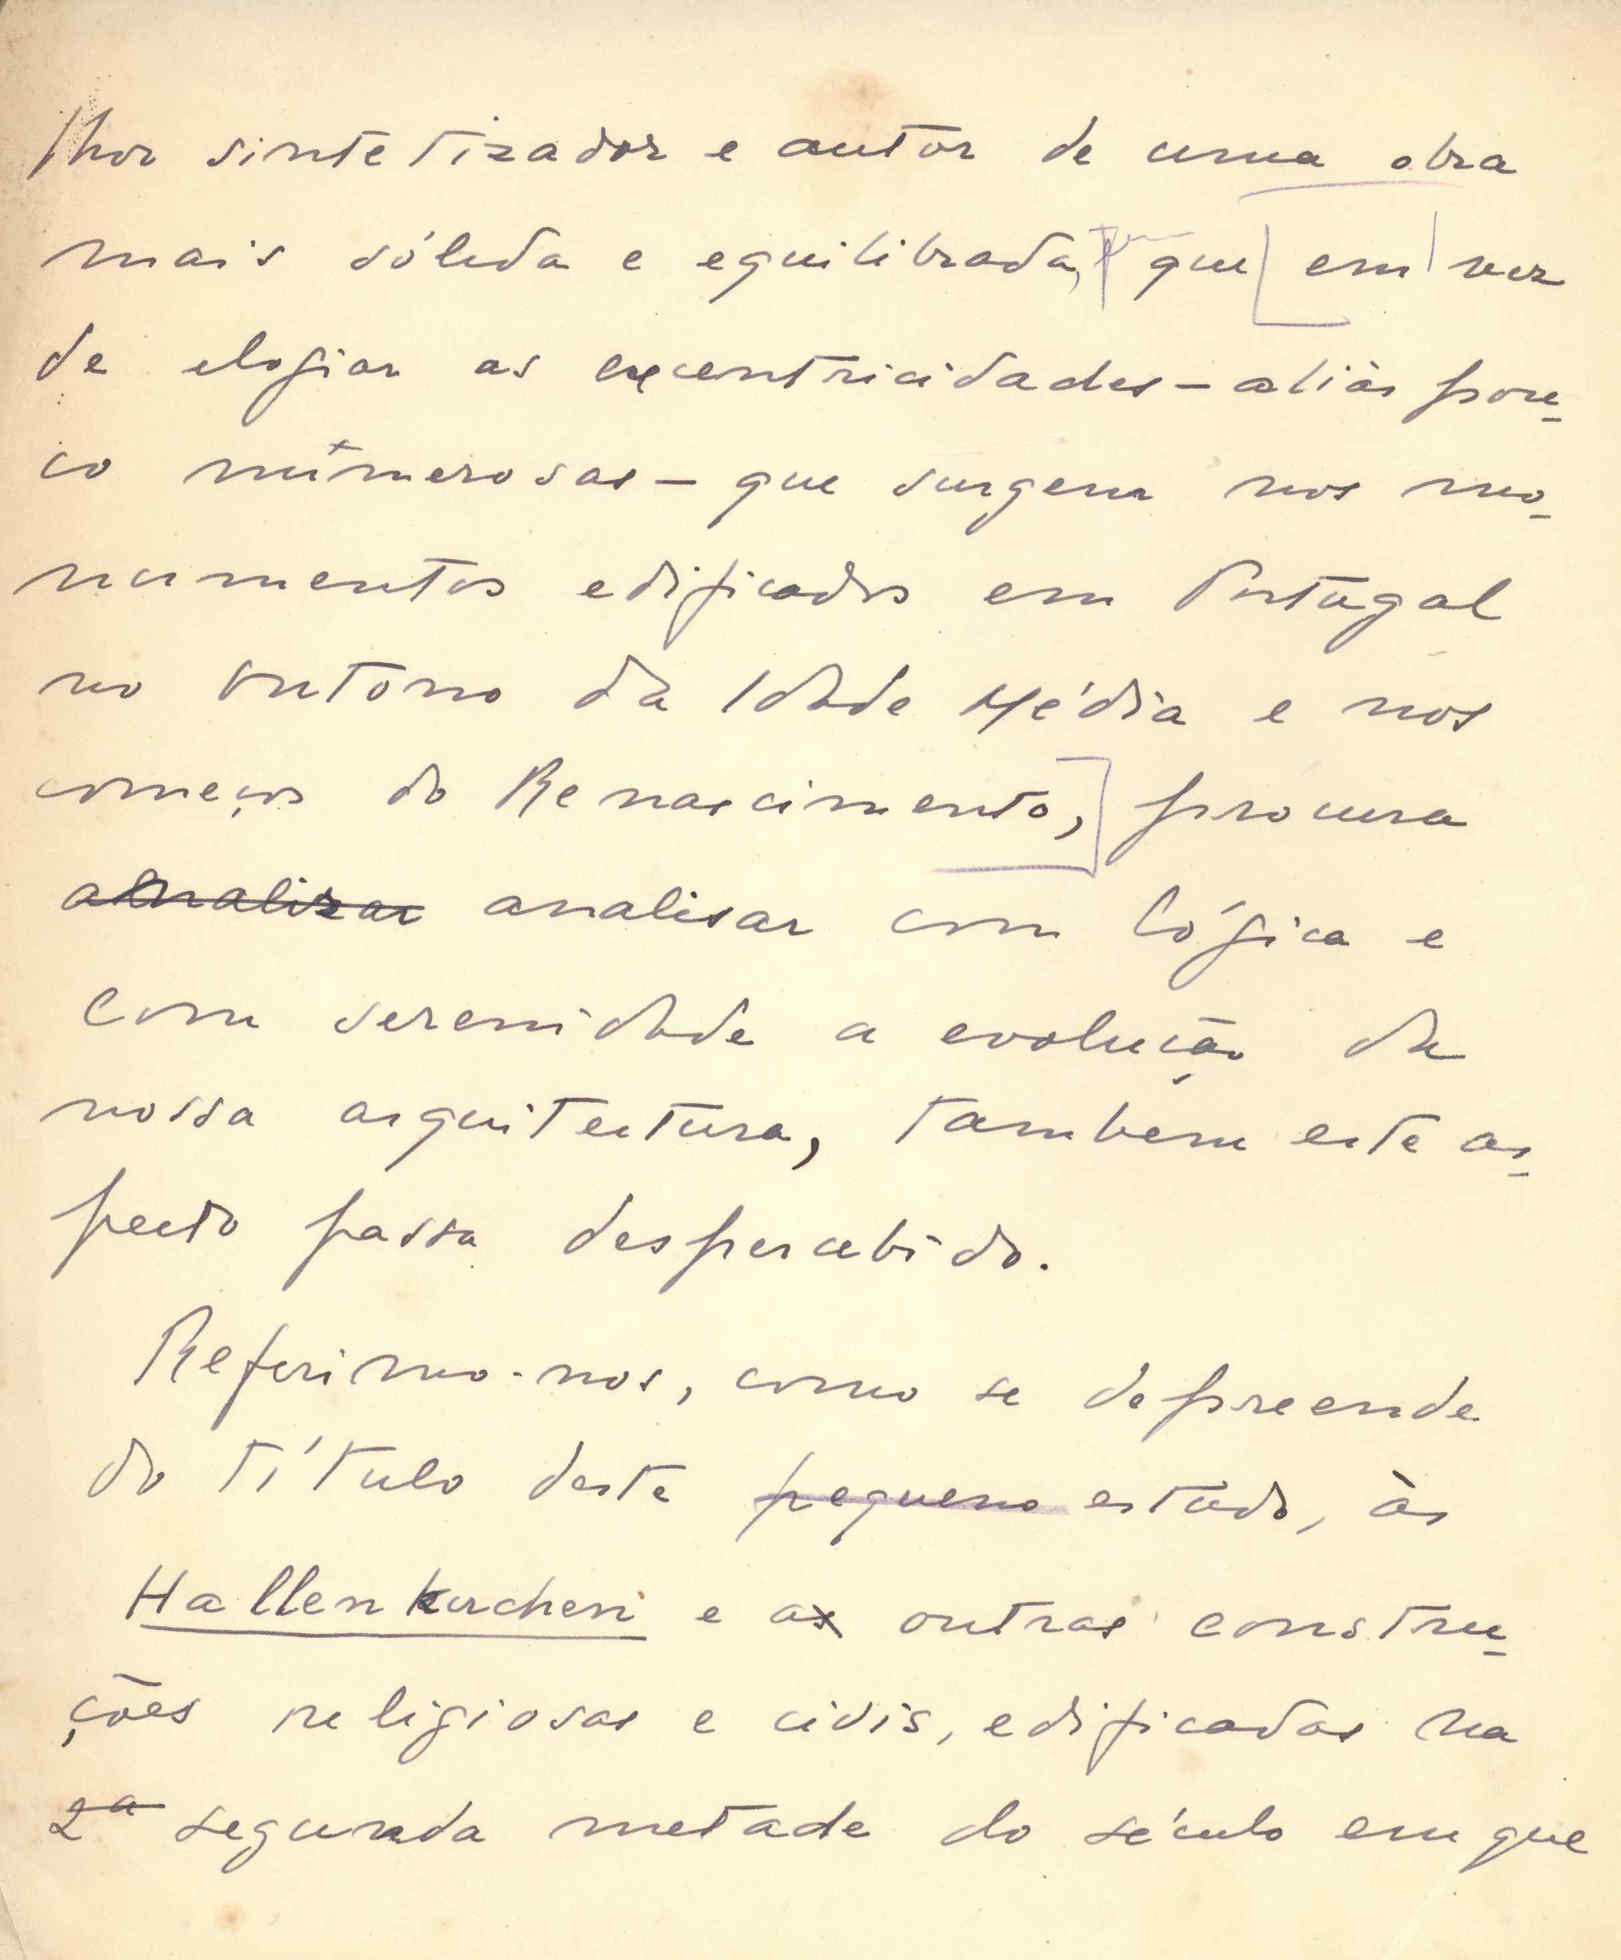 lhor sintetizador e autor de uma obra
mais sólida e equilibrada, que em vez
de elogiar as excentricidades - aliàs pou-
co numerosas - que surgem nos mo-
numentos edificados em Portugal
no outono da Idade Média e nos
começos do Renascimento, procura
analizar analisar com lógica e
com serenidade a evolução da
nossa arquitectura, tambem este as-
pecto passa despercebido.
Referimo-nos, como se depreende
do título deste pequeno estudo, às
Hallenkirchen e as outras constru-
ções religiosas e civis, edificadas na
2ª segunda metade do século em que